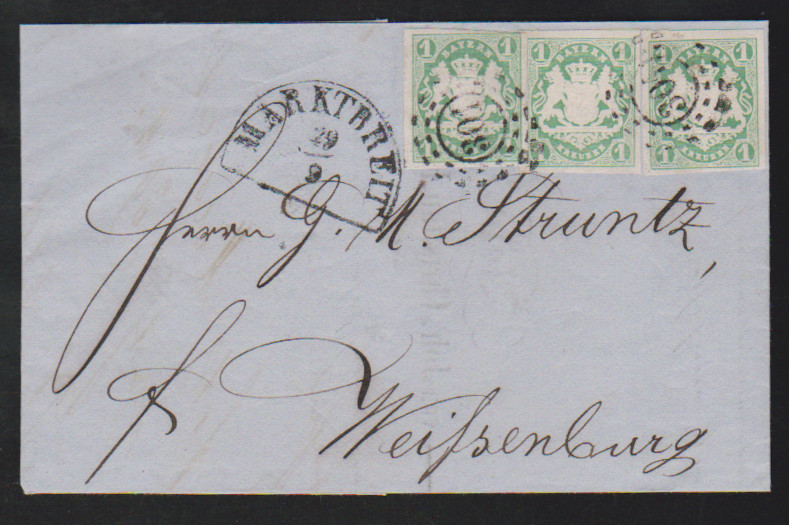 1 BAYERN 1
1 KREUZER 1
1 BAYERN 1
1 KREUZER 1
1 BAYERN 1
1 KREUZER 1
MARKTBREIT
29
9
Herrn G. M. Struntz,
Weißenburg